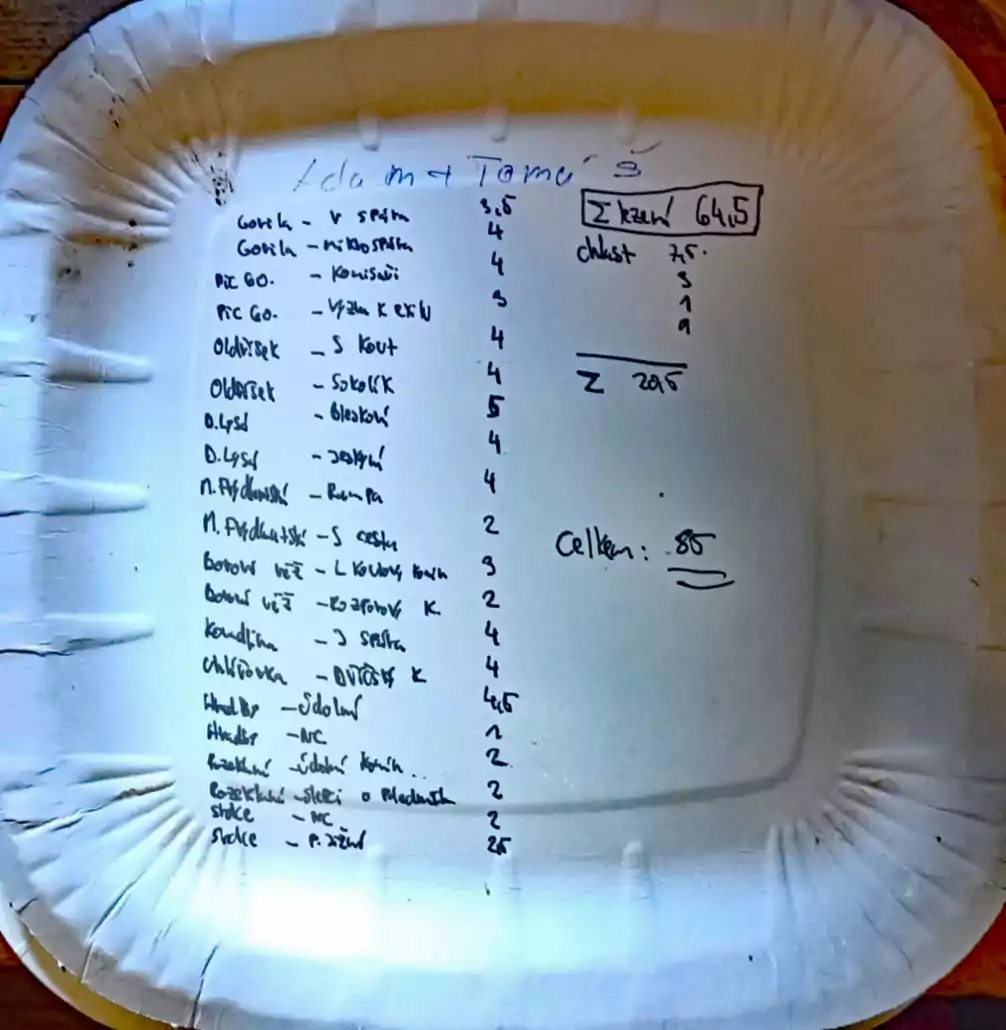 Adam + Tomáš
Gorila - V spára 3,5
Gorila - mikrospára 4
PIC GO. - Komisaři 4
PIC GO. - Výzva k exilu 3
Oldříšek - S kout 4
Oldříšek - Sokolík 4
D. Lysá - Blesková 5
D. Lysá - 4
M. Frýdlantská - Rampa 4
M. Frýdlantská - S cesta 2
Borová věž - L koutový komín 3
Borová věž - Rozporový K. 2
- J spára 4
- K 4
Hradby - Údolní 4,5
Hradby - NC 1
Rozeklaná - Údolní komín.. 2
Rozeklaná - o 2
Srdce - NC 2
Srdce - P. 2,5
Σ lezení 64,5
chlast 7,5.
3
1
9
Σ 20,5
Celkem: 85